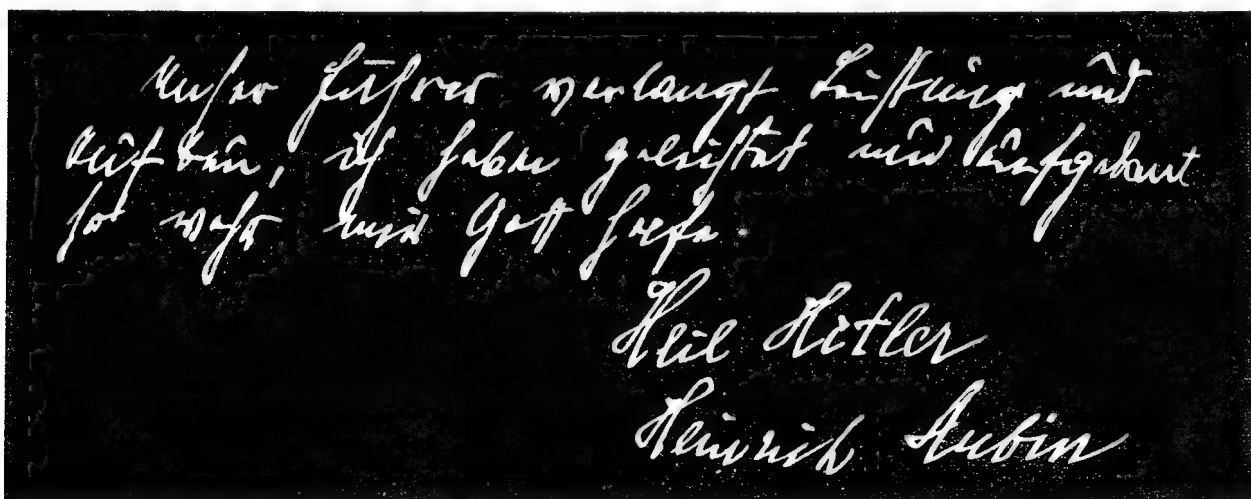 Unser Führer verlangt Leistung und
Aufbau, ich habe geleistet und aufgebaut
so wahr mir Gott helfe.
Heil Hitler
Heinrich Aubin